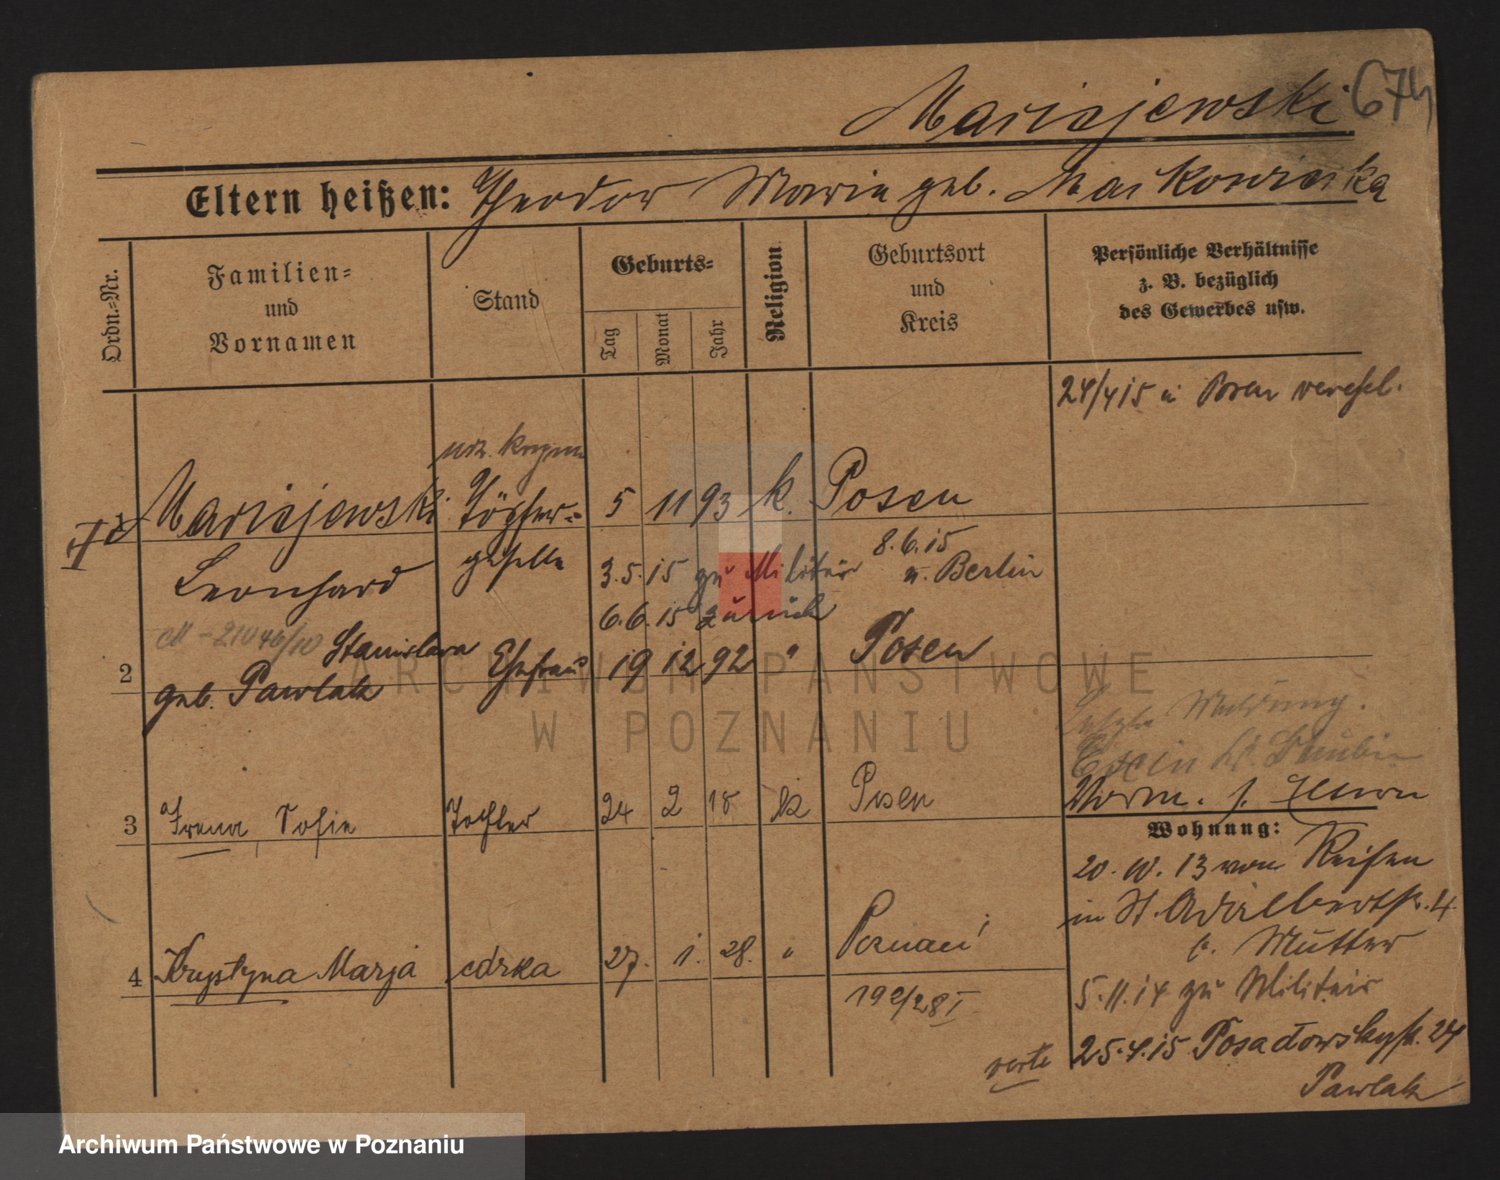 Maciejewski 674
Eltern heißen: Theodor Marie geb. Maćkowiecka
Ordn.-Nr.
Familien-
und
Vornamen
Stand
Geburts-
Tag
Monat
Jahr
Religion
Geburtsort
und
Kreis
Persönliche Verhältnisse
z. B. bezüglich
des Gewerbes usw.
24/4 15 in Posen verehel.
1 Maciejewski Töpfer- 5 11 93 k. Posen
Leonhard geselle
3.5.15 zu Militär 8.6.15
n. Berlin
6.6.15 zurück
2 Stanislava Ehefrau 19 12 92 " Posen
geb. Pawlak
Letzte Meldung.
3 Irena Sofie Tochter 24 2 18 k Posen
Wohnung:
20. 10. 13 von Reisen
in St. Adalbertstr. 4
b. Mutter
4 Krystyna Marja córka 27. 1. 28. " Poznań
192/28 I
5.11.14 zu Militär
verte 25.4.15 Posadowskystr. 24
Pawlak
ARCHIWUM PAŃSTWOWE
W POZNANIU
Archiwum Państwowe w Poznaniu